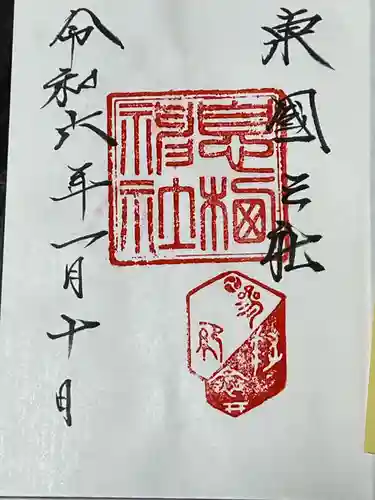 東國三社
息栖
神社
令和六年一月十日